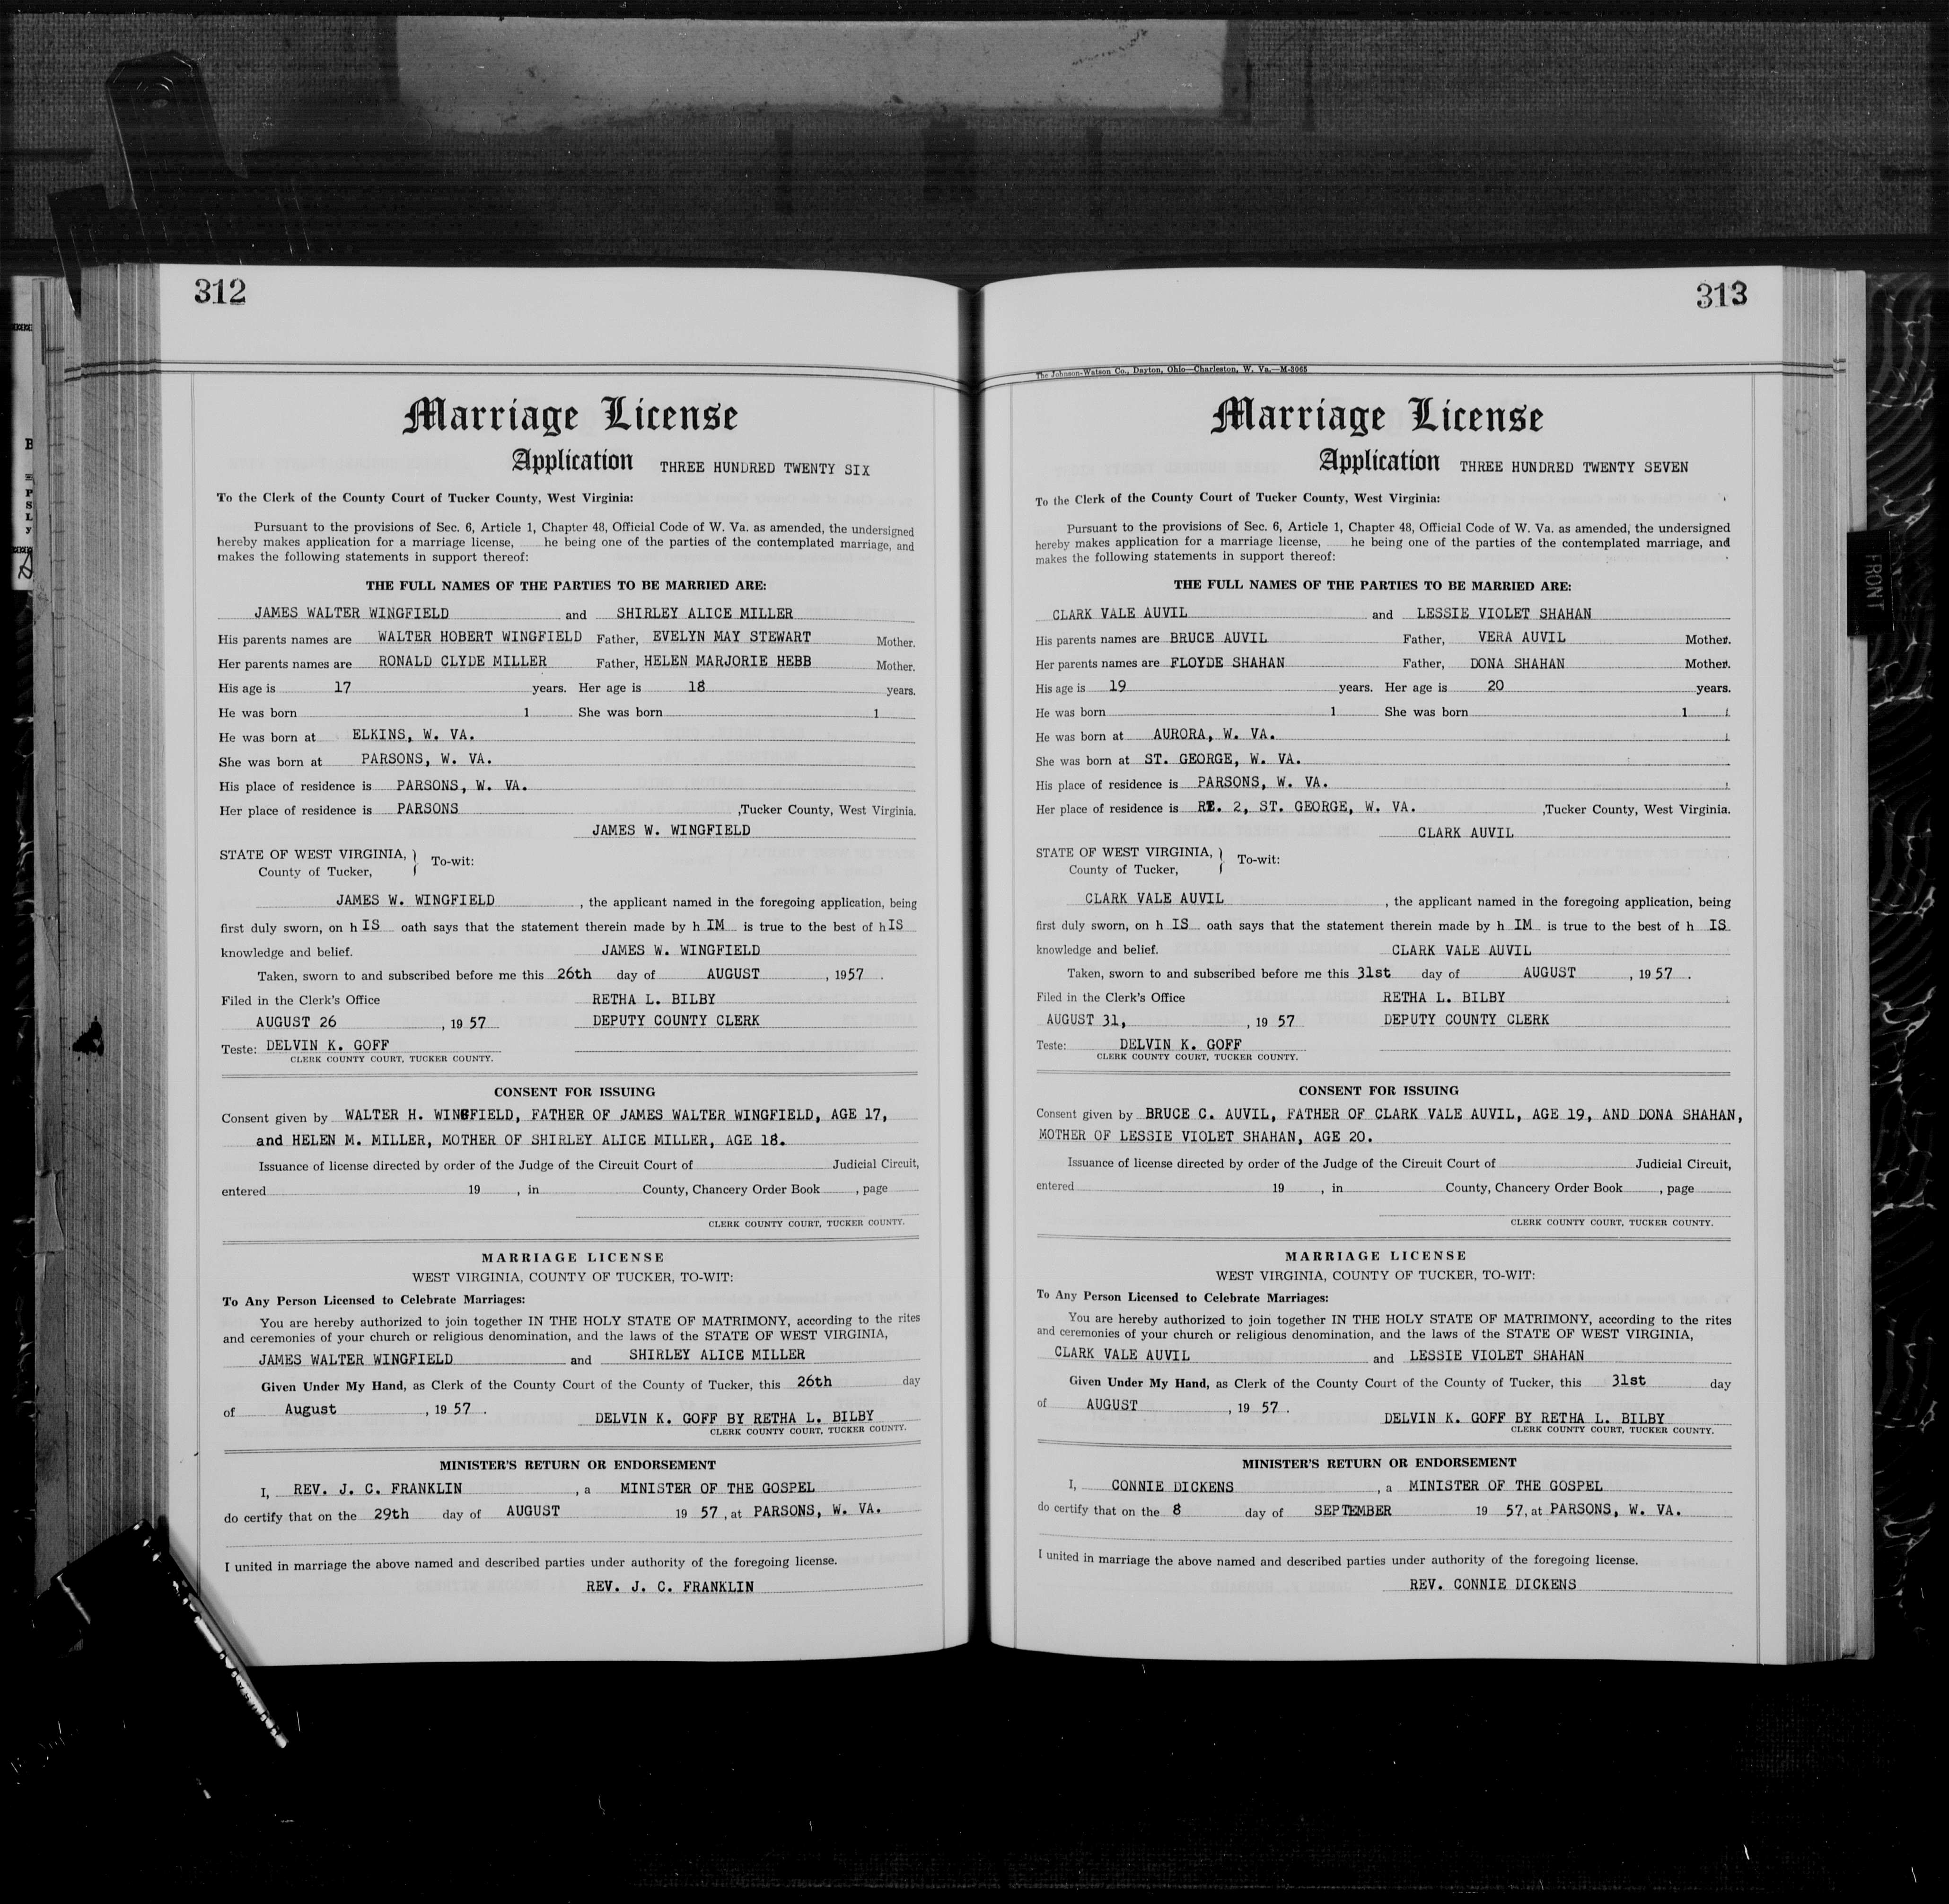 312
Marriage License
Application THREE HUNDRED TWENTY SIX
To the Clerk of the County Court of Tucker County, West Virginia:
Pursuant to the provisions of Sec. 6, Article 1, Chapter 48, Official Code of W. Va. as amended, the undersigned
hereby makes application for a marriage license, he being one of the parties of the contemplated marriage, and
makes the following statements in support thereof:
THE FULL NAMES OF THE PARTIES TO BE MARRIED ARE:
JAMES WALTER WINGFIELD and SHIRLEY ALICE MILLER
His parents names are WALTER HOBERT WINGFIELD Father, EVELYN MAY STEWART Mother.
Her parents names are RONALD CLYDE MILLER Father, HELEN MARJORIE HEBB Mother.
His age is 17 years. Her age is 18 years.
He was born 1 She was born 1
He was born at ELKINS, W. VA.
She was born at PARSONS, W. VA.
His place of residence is PARSONS, W. VA.
Her place of residence is PARSONS ,Tucker County, West Virginia.
JAMES W. WINGFIELD
STATE OF WEST VIRGINIA, } To-wit:
County of Tucker,
JAMES W. WINGFIELD , the applicant named in the foregoing application, being
first duly sworn, on h IS oath says that the statement therein made by h IM is true to the best of h IS
knowledge and belief. JAMES W. WINGFIELD
Taken, sworn to and subscribed before me this 26th day of AUGUST , 1957 .
Filed in the Clerk's Office RETHA L. BILBY
AUGUST 26 , 19 57 DEPUTY COUNTY CLERK
Teste: DELVIN K. GOFF
CLERK COUNTY COURT, TUCKER COUNTY.
CONSENT FOR ISSUING
Consent given by WALTER H. WINGFIELD, FATHER OF JAMES WALTER WINGFIELD, AGE 17,
and HELEN M. MILLER, MOTHER OF SHIRLEY ALICE MILLER, AGE 18.
Issuance of license directed by order of the Judge of the Circuit Court of Judicial Circuit,
entered 19 , in County, Chancery Order Book , page
CLERK COUNTY COURT, TUCKER COUNTY.
MARRIAGE LICENSE
WEST VIRGINIA, COUNTY OF TUCKER, TO-WIT:
To Any Person Licensed to Celebrate Marriages:
You are hereby authorized to join together IN THE HOLY STATE OF MATRIMONY, according to the rites
and ceremonies of your church or religious denomination, and the laws of the STATE OF WEST VIRGINIA,
JAMES WALTER WINGFIELD and SHIRLEY ALICE MILLER
Given Under My Hand, as Clerk of the County Court of the County of Tucker, this 26th day
of August , 19 57 .
DELVIN K. GOFF BY RETHA L. BILBY
CLERK COUNTY COURT, TUCKER COUNTY.
MINISTER'S RETURN OR ENDORSEMENT
I, REV. J. C. FRANKLIN , a MINISTER OF THE GOSPEL
do certify that on the 29th day of AUGUST 19 57 , at PARSONS, W. VA.
I united in marriage the above named and described parties under authority of the foregoing license.
REV. J. C. FRANKLIN
313
The Johnson-Watson Co., Dayton, Ohio—Charleston, W. Va.—M-5065
Marriage License
Application THREE HUNDRED TWENTY SEVEN
To the Clerk of the County Court of Tucker County, West Virginia:
Pursuant to the provisions of Sec. 6, Article 1, Chapter 48, Official Code of W. Va. as amended, the undersigned
hereby makes application for a marriage license, he being one of the parties of the contemplated marriage, and
makes the following statements in support thereof:
THE FULL NAMES OF THE PARTIES TO BE MARRIED ARE:
CLARK VALE AUVIL and LESSIE VIOLET SHAHAN
His parents names are BRUCE AUVIL Father, VERA AUVIL Mother.
Her parents names are FLOYDE SHAHAN Father, DONA SHAHAN Mother.
His age is 19 years. Her age is 20 years.
He was born 1 She was born 1
He was born at AURORA, W. VA.
She was born at ST. GEORGE, W. VA.
His place of residence is PARSONS, W. VA.
Her place of residence is RT. 2, ST. GEORGE, W. VA. ,Tucker County, West Virginia.
CLARK AUVIL
STATE OF WEST VIRGINIA, } To-wit:
County of Tucker,
CLARK VALE AUVIL , the applicant named in the foregoing application, being
first duly sworn, on h IS oath says that the statement therein made by h IM is true to the best of h IS
knowledge and belief. CLARK VALE AUVIL
Taken, sworn to and subscribed before me this 31st day of AUGUST , 19 57 .
Filed in the Clerk's Office RETHA L. BILBY
AUGUST 31, , 19 57 DEPUTY COUNTY CLERK
Teste: DELVIN K. GOFF
CLERK COUNTY COURT, TUCKER COUNTY.
CONSENT FOR ISSUING
Consent given by BRUCE C. AUVIL, FATHER OF CLARK VALE AUVIL, AGE 19, AND DONA SHAHAN,
MOTHER OF LESSIE VIOLET SHAHAN, AGE 20.
Issuance of license directed by order of the Judge of the Circuit Court of Judicial Circuit,
entered 19 , in County, Chancery Order Book , page
CLERK COUNTY COURT, TUCKER COUNTY.
MARRIAGE LICENSE
WEST VIRGINIA, COUNTY OF TUCKER, TO-WIT:
To Any Person Licensed to Celebrate Marriages:
You are hereby authorized to join together IN THE HOLY STATE OF MATRIMONY, according to the rites
and ceremonies of your church or religious denomination, and the laws of the STATE OF WEST VIRGINIA,
CLARK VALE AUVIL and LESSIE VIOLET SHAHAN
Given Under My Hand, as Clerk of the County Court of the County of Tucker, this 31st day
of AUGUST , 19 57 .
DELVIN K. GOFF BY RETHA L. BILBY
CLERK COUNTY COURT, TUCKER COUNTY.
MINISTER'S RETURN OR ENDORSEMENT
I, CONNIE DICKENS , a MINISTER OF THE GOSPEL
do certify that on the 8 day of SEPTEMBER 19 57, at PARSONS, W. VA.
I united in marriage the above named and described parties under authority of the foregoing license.
REV. CONNIE DICKENS
FRONT